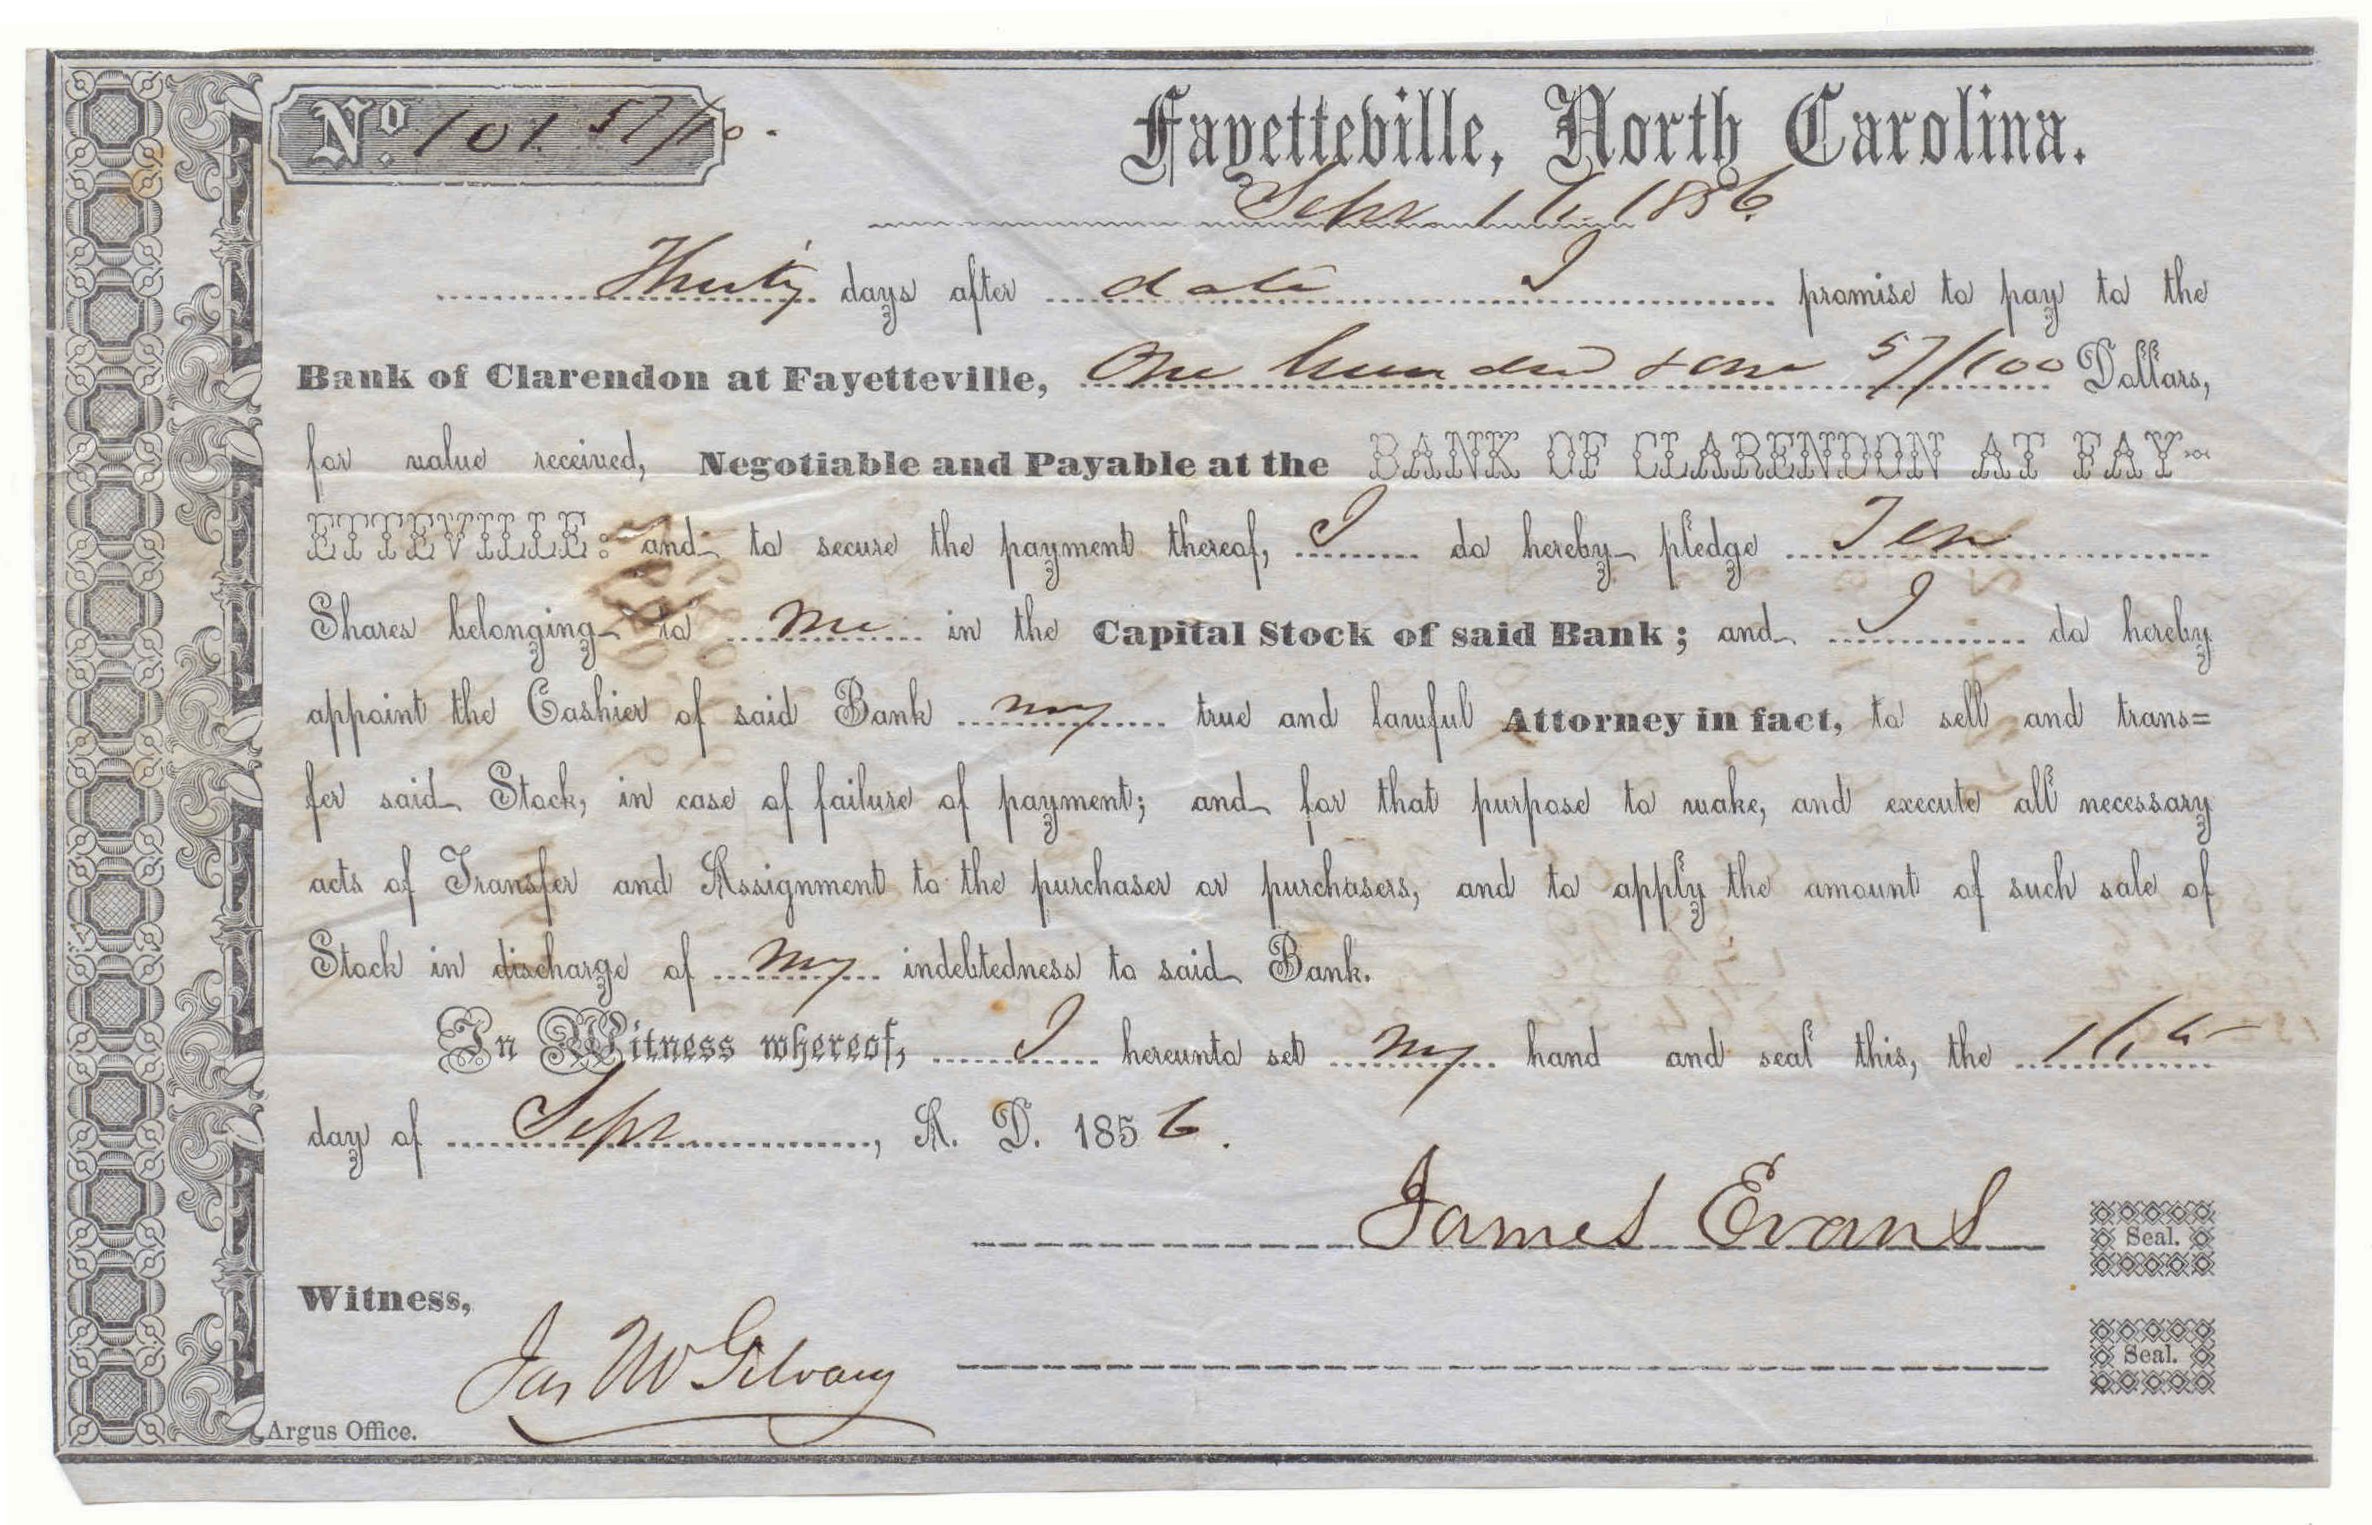 No. 101. 57/100.
Fayetteville, North Carolina.
Sept 16 1856.
Thirty days after date I promise to pay to the
Bank of Clarendon at Fayetteville, One hundred & one 57/100 Dollars,
for value received, Negotiable and Payable at the BANK OF CLARENDON AT FAY-
ETTEVILLE: and to secure the payment thereof, I do hereby pledge Ten
Shares belonging to me in the Capital Stock of said Bank; and I do hereby
appoint the Cashier of said Bank my true and lawful Attorney in fact, to sell and trans=
fer said Stock, in case of failure of payment; and for that purpose to make, and execute all necessary
acts of Transfer and Assignment to the purchaser or purchasers, and to apply the amount of such sale of
Stock in discharge of my indebtedness to said Bank.
In Witness whereof, I hereunto set my hand and seal this, the 16th
day of Sept, A. D. 1856.
James Evans Seal.
Witness,
Jas McGilvary Seal.
Argus Office.